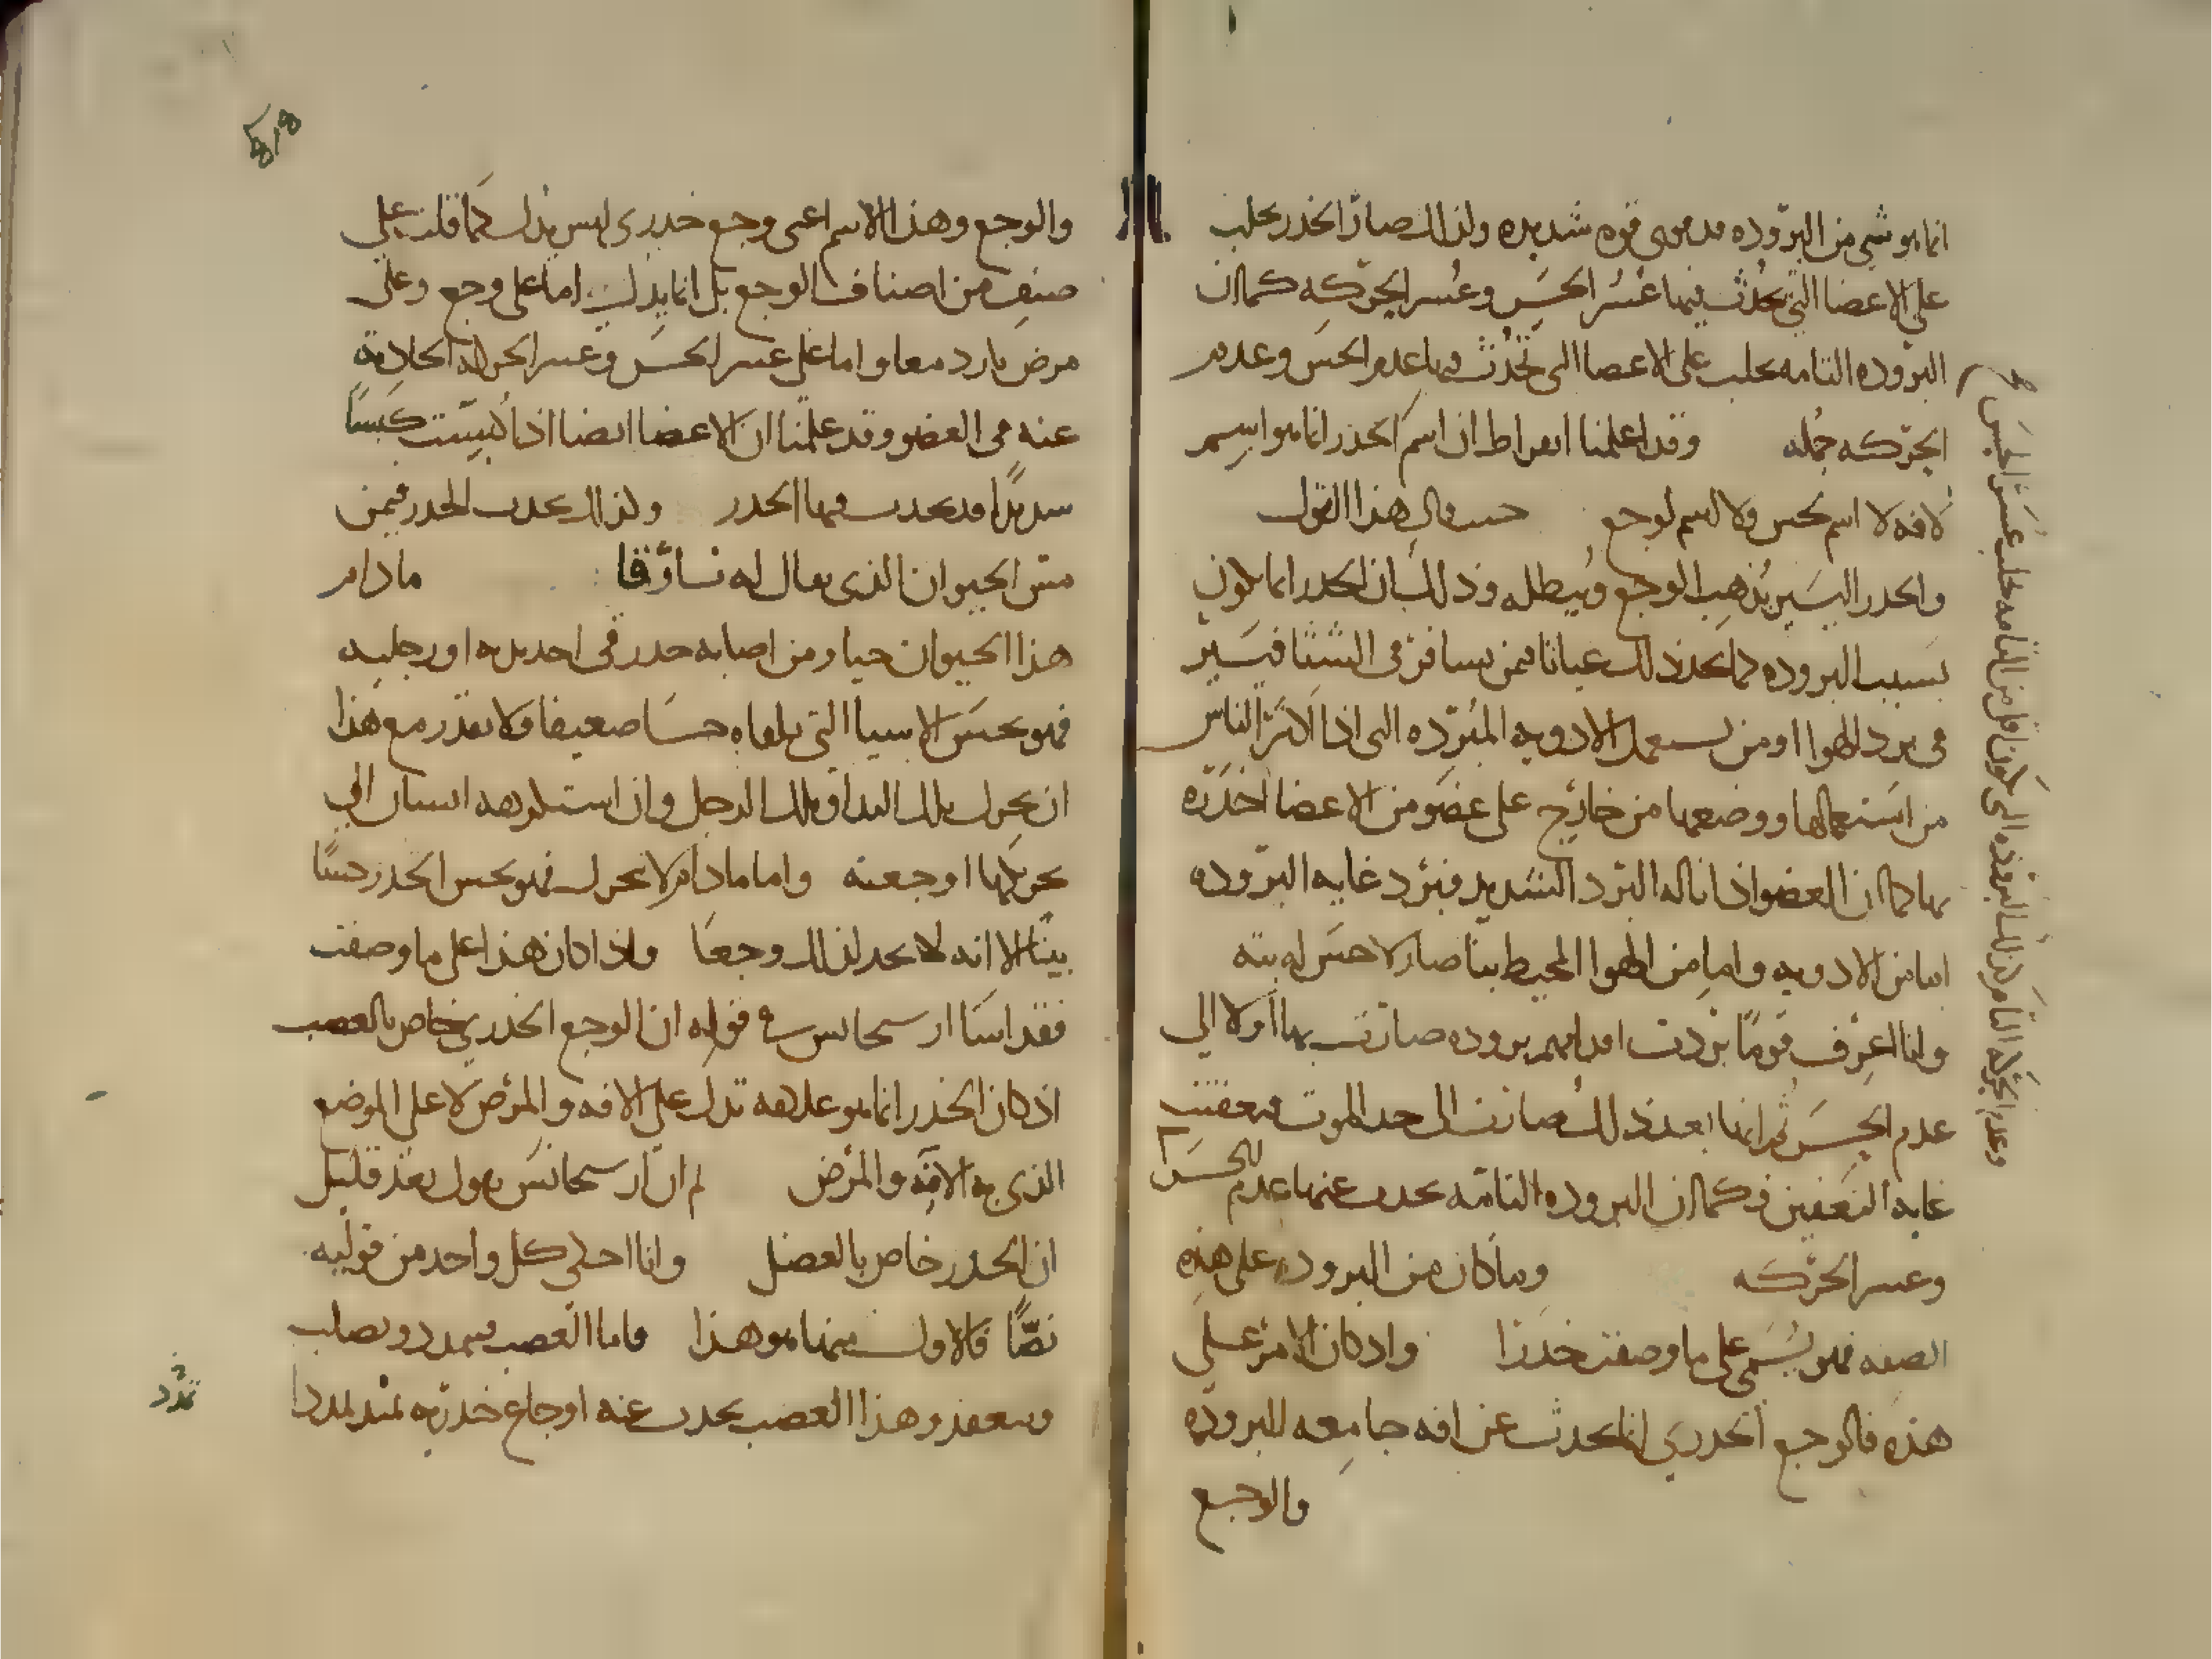 انما هو شي من البروده قد قوى قوه شديده ولذلك صار الخدر يجلب
على الاعضا التى يحدث فيها عسر الحس وعسر الحركه كما ان
البروده التامه يجلب على الاعضا التى تحدث فيها عدم الحس وعدم
الحركه جمله وقد اعلمنا ابقراط ان اسم الخدر انما هو اسم
لافه لا اسم لحس ولا اسم لوجع حيث قال هذا القول
والخدر اليسير يذهب الوجع ويبطله وذلك ان الخدر انما يكون
بسبب البروده كما نجد ذلك عيانا فيمن يسافر فى الشتا فيسير
فى برد الهوا او من يستعمل الادويه المبرده التى اذا اكثر الناس
من استعمالها ووضعها من خارج على عضو من الاعضا اخدره
بها كما ان العضو اذا ناله البرد الشديد فبرد غايه البروده
اما من الادويه واما من الهوا المحيط بنا صار لا حس له بته
وانا اعرف قوما بردت اقدامهم بروده صارت بها اولا الى
عدم الحس ثم انها بعد ذلك صارت الى حد الموت فعفنت
غايه التعفين فكما ان البروده التامه يحدث عنها عدم الحس
وعسر الحركه وما كان من البروده على هذه
الصفه فهو يسمى على ما وصفت خدرا واذ كان الامر على
هذه فالوجع الخدرى انما يحدث عن افه جامعه للبروده
والوجع
وعدم الحركه التام كذلك البروده التى تكون اقل من التامه يجلب عسر الحس
والوجع وهذا الاسم اعنى وجع خدرى ليس يدل كما قلت على
صنف من اصناف الوجع بل انما يدل اما على وجع وعلى
مرض بارد معا واما على عسر الحس وعسر الحركه الحادثه
عنه فى العضو وقد علمنا ان الاعضا ايضا اذا كبست كبسا
شديدا قد يحدث فيها الخدر ولذلك يحدث الخدر فيمن
مس الحيوان الذى يقال له نارقا ما دام
هذا الحيوان حيا ومن اصابه خدر فى احد يديه او رجليه
فهو يحس الاشيا التى يلقاه حسا ضعيفا ولا يقدر مع هذا
ان يحرك تلك اليد او تلك الرجل وان استكرهه انسان الى
تحريكها اوجعته واما ما دام لا يحرك فهو يحس الخدر حسا
بينا الا انه لا يجد لذلك وجعا واذا كان هذا على ما وصفت
فقد اسا ارسحانس فى قوله ان الوجع الخدرى خاص بالعصب
اذ كان الخدر انما هو علامه تدل على الافه والمرض لا على الموضع
الذى به الافه والمرض ثم ان ارسحانس يقول بعد قليل
ان الخدر خاص بالعضل وانا احكى كل واحد من قوليه
نصا فالاول منهما هو هذا فاما العصب فيمدد ويصلب
وهذا العصب يحدث عنه اوجاع خدريه
تمدد